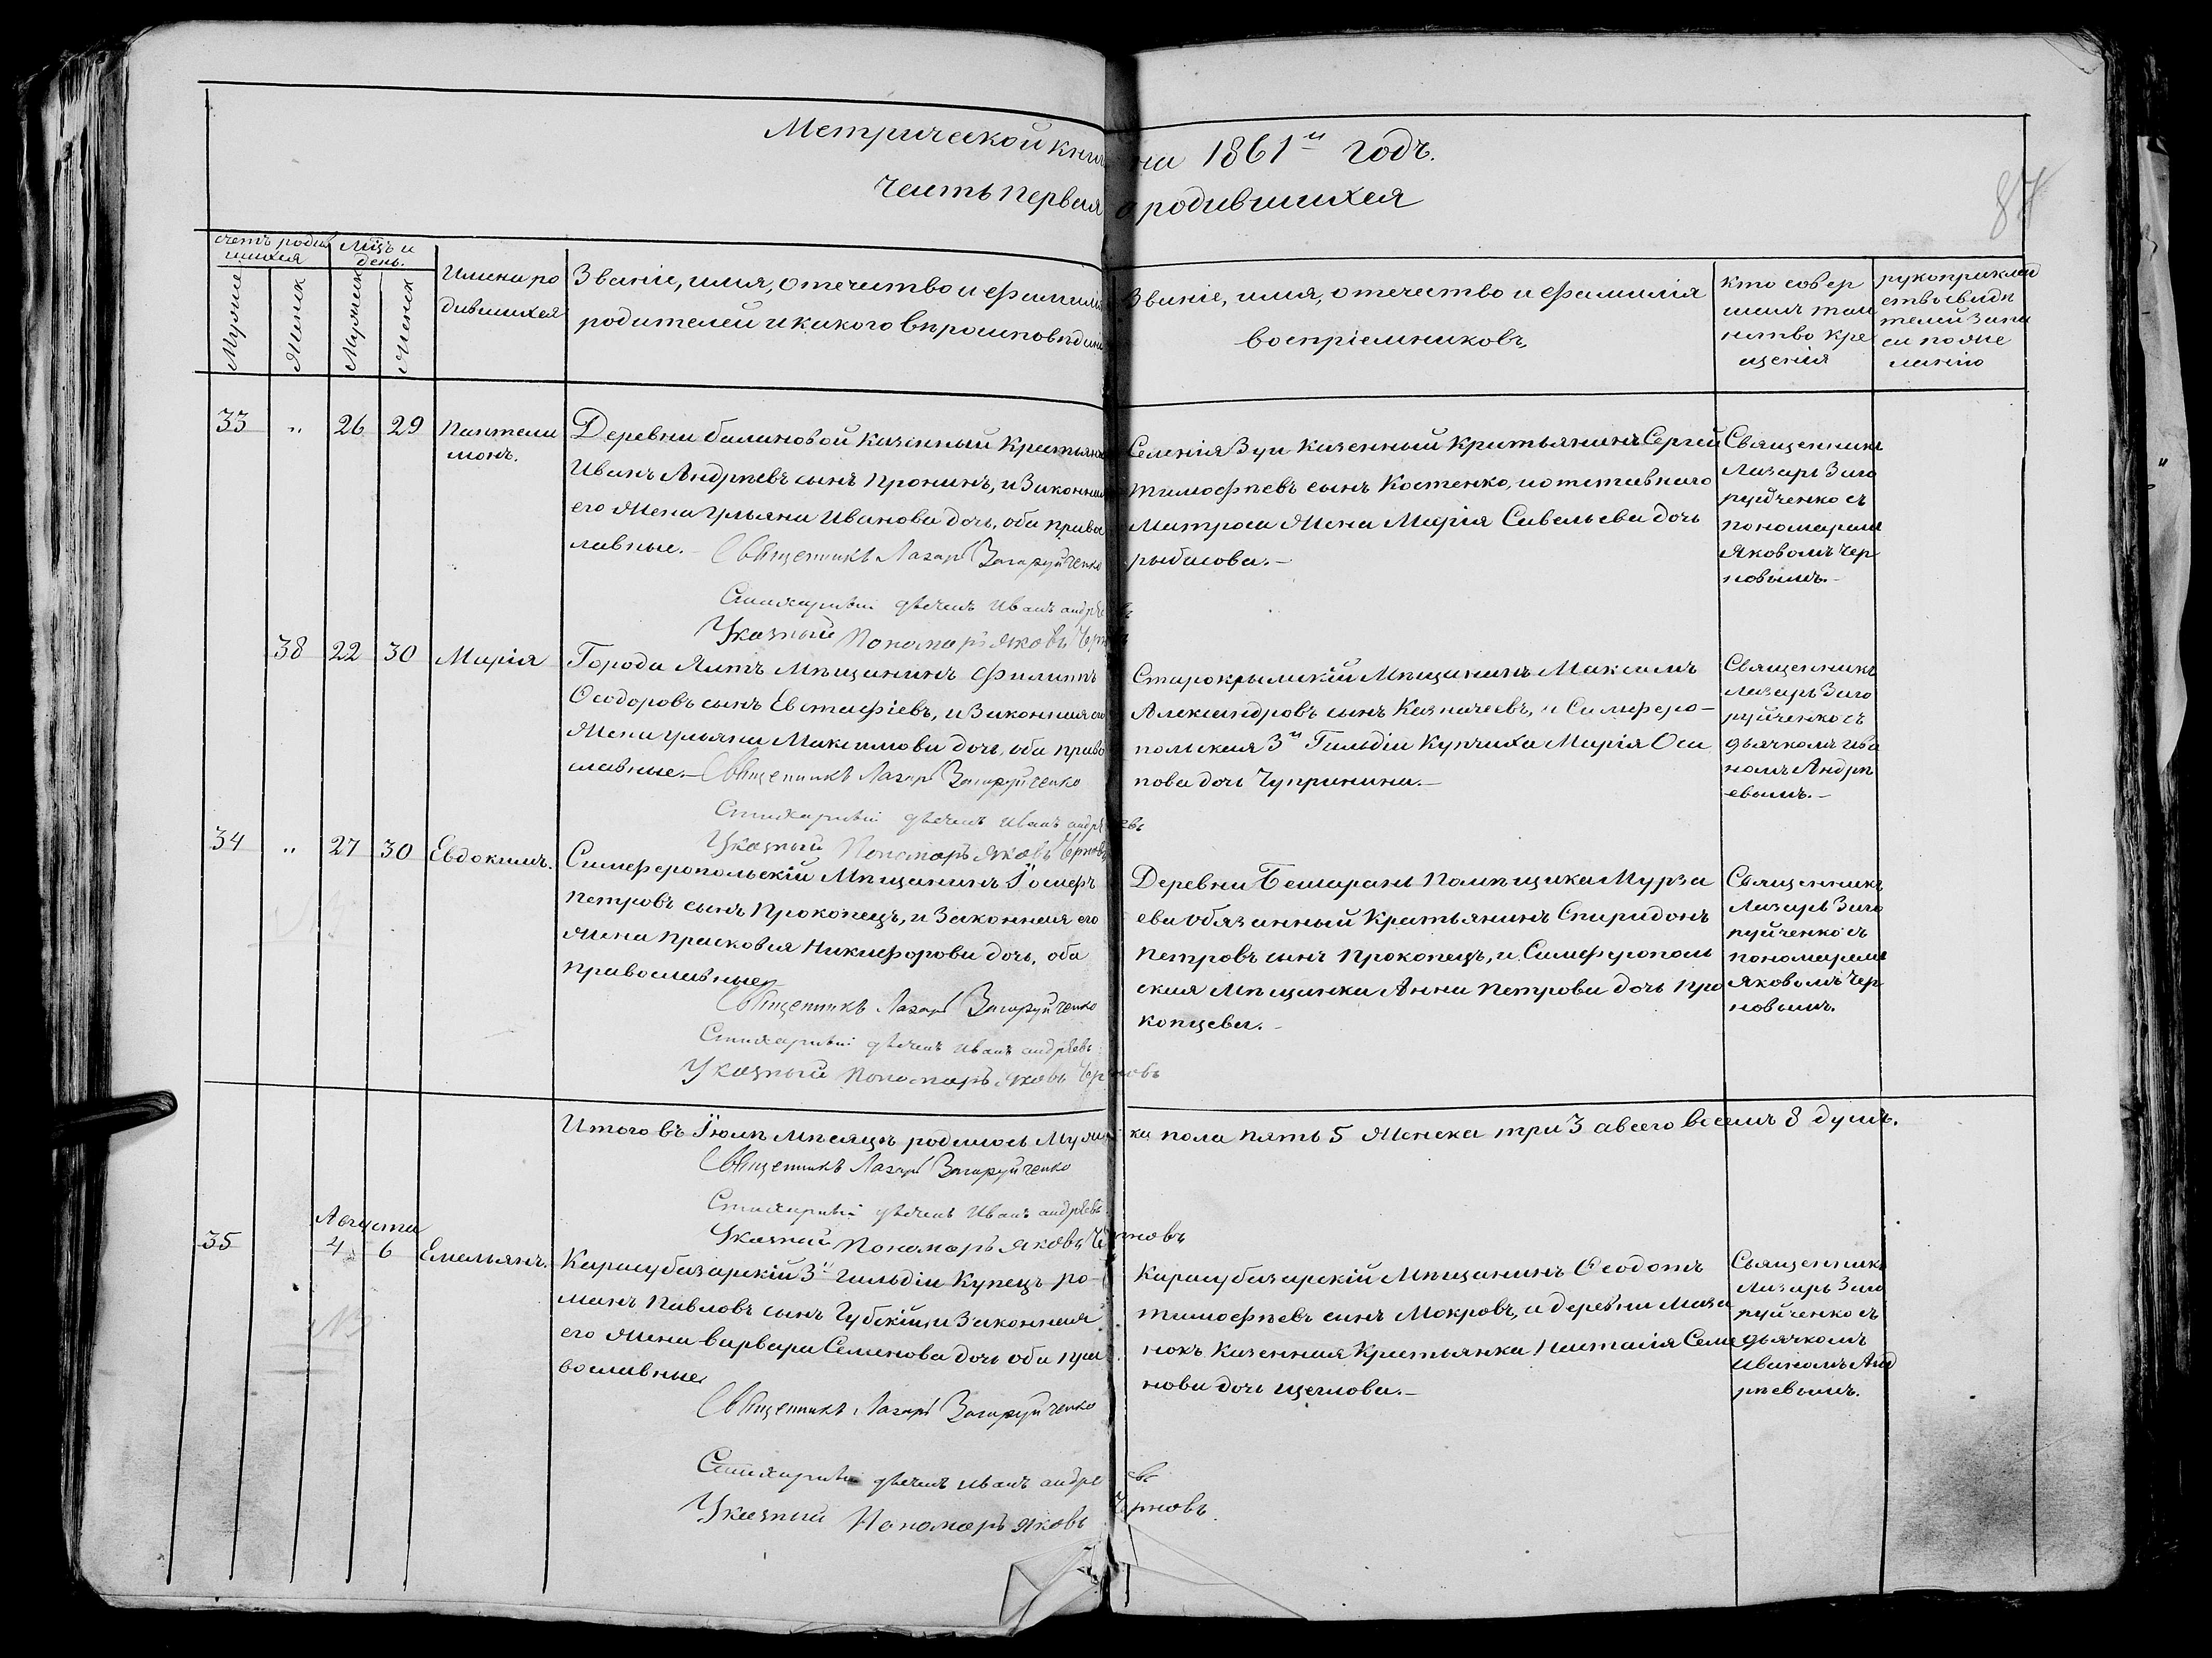 Метрической кни на 1861й годъ.
Часть первая о родившихся
87
счетъ родив
шихся
Мѣцъ и
день.
Мужеск
Женск
Мужеск
Женск
Имена ро
дившихся
Званіе, имя, отечество и фамилія
родителей и какого вѣроисповѣдан
Званіе, имя, отечество и фамилія
воспріемниковъ,
кто совер
шилъ таи
нство кре
щенія
рукоприклад
ство свидѣ
телей запи
си по же
ланію
33 " 26 29 Пантели
монъ.
Деревни Балановой казенный Крестьяни
Иванъ Андрѣевъ сынъ Пронинъ, и Законная
его Жена Ульяна Иванова дочь, оба право
лавные.
Священникъ Лазарь Загоруйченко
Стихарный дьячекъ Иванъ андрѣевъ
Указный Пономарь Яковъ Черновъ
Селенія Зуи Казенный Крестьянинъ Сергей
Тимофѣевъ сынъ Костенко, и отставнаго
Матроса Жена Марія Савельева дочь
рыбакова.
Священникъ
Лазарь Заго
руйченко съ
пономаремъ
Яковомъ Чер
новымъ.
38 22 30 Марія
Города Ялтъ Мѣщанинъ Филиппъ
Ѳеодоровъ сынъ Евстафіевъ, и Законная его
Жена Ульяна Максимова дочь, оба право
славные.
Священникъ Лазарь Загоруйченко
Стихарный дьячекъ Иванъ андрѣевъ
Указный Пономарь Яковъ Черновъ
Старокрымскій Мѣщанинъ Максимъ
Александровъ сынъ Казначеевъ, и Симферо-
польская 3й Гильдіи Купчиха Марія Оси
пова дочь Чупринина.
Священникъ
Лазарь Заго
руйченко съ
дьячкомъ Ива
номъ Андрѣ
евымъ.
34 " 27 30 Евдокимъ.
Симферопольскій Мѣщанинъ Іосифъ
Петровъ сынъ Прокопецъ, и Законная его
Жена Прасковья Никифорова дочь, оба
православные
Священникъ Лазарь Загоруйченко
Стихарный дьячекъ Иванъ андрѣевъ
Указный Пономарь Яковъ Черновъ
Деревни Бешарани Помѣщика Мурза
ева обязанный Крестьянинъ Спиридонъ
Петровъ сынъ Прокопецъ, и Симферополь
ская Мѣщанка Анна Петрова дочь Про
копцева.
Священникъ
Лазарь Заго
руйченко съ
пономаремъ
Яковомъ Чер
новымъ.
Итого въ Іюлѣ Мѣсяцѣ родилось Мужеска пола пять 5 Женска три 3 а всего восемъ 8 душъ.
Священникъ Лазарь Загоруйченко
Стихарный дьячекъ Иванъ андрѣевъ
Указный Пономарь Яковъ Черновъ
Августа
35 4 6 Емельянъ.
Карасубазарскій 3й гильдіи Купецъ Ро-
манъ Павловъ сынъ Губскій, и Законная
его Жена Варвара Семенова дочь оба пра
вославные
Священникъ Лазарь Загоруйченко
Стихарный дьячекъ Иванъ андрѣевъ
Указный Пономарь Яковъ Черновъ
Карасубазарскій Мѣщанинъ Ѳеодотъ
Тимофѣевъ сынъ Мокровъ, и деревни Маза
нокъ Казенная Крестьянка Наталія Семе
нова дочь Щеглова.
Священникъ
Лазарь Заго
руйченко съ
дьячкомъ
Иваномъ Анд
рѣевымъ.